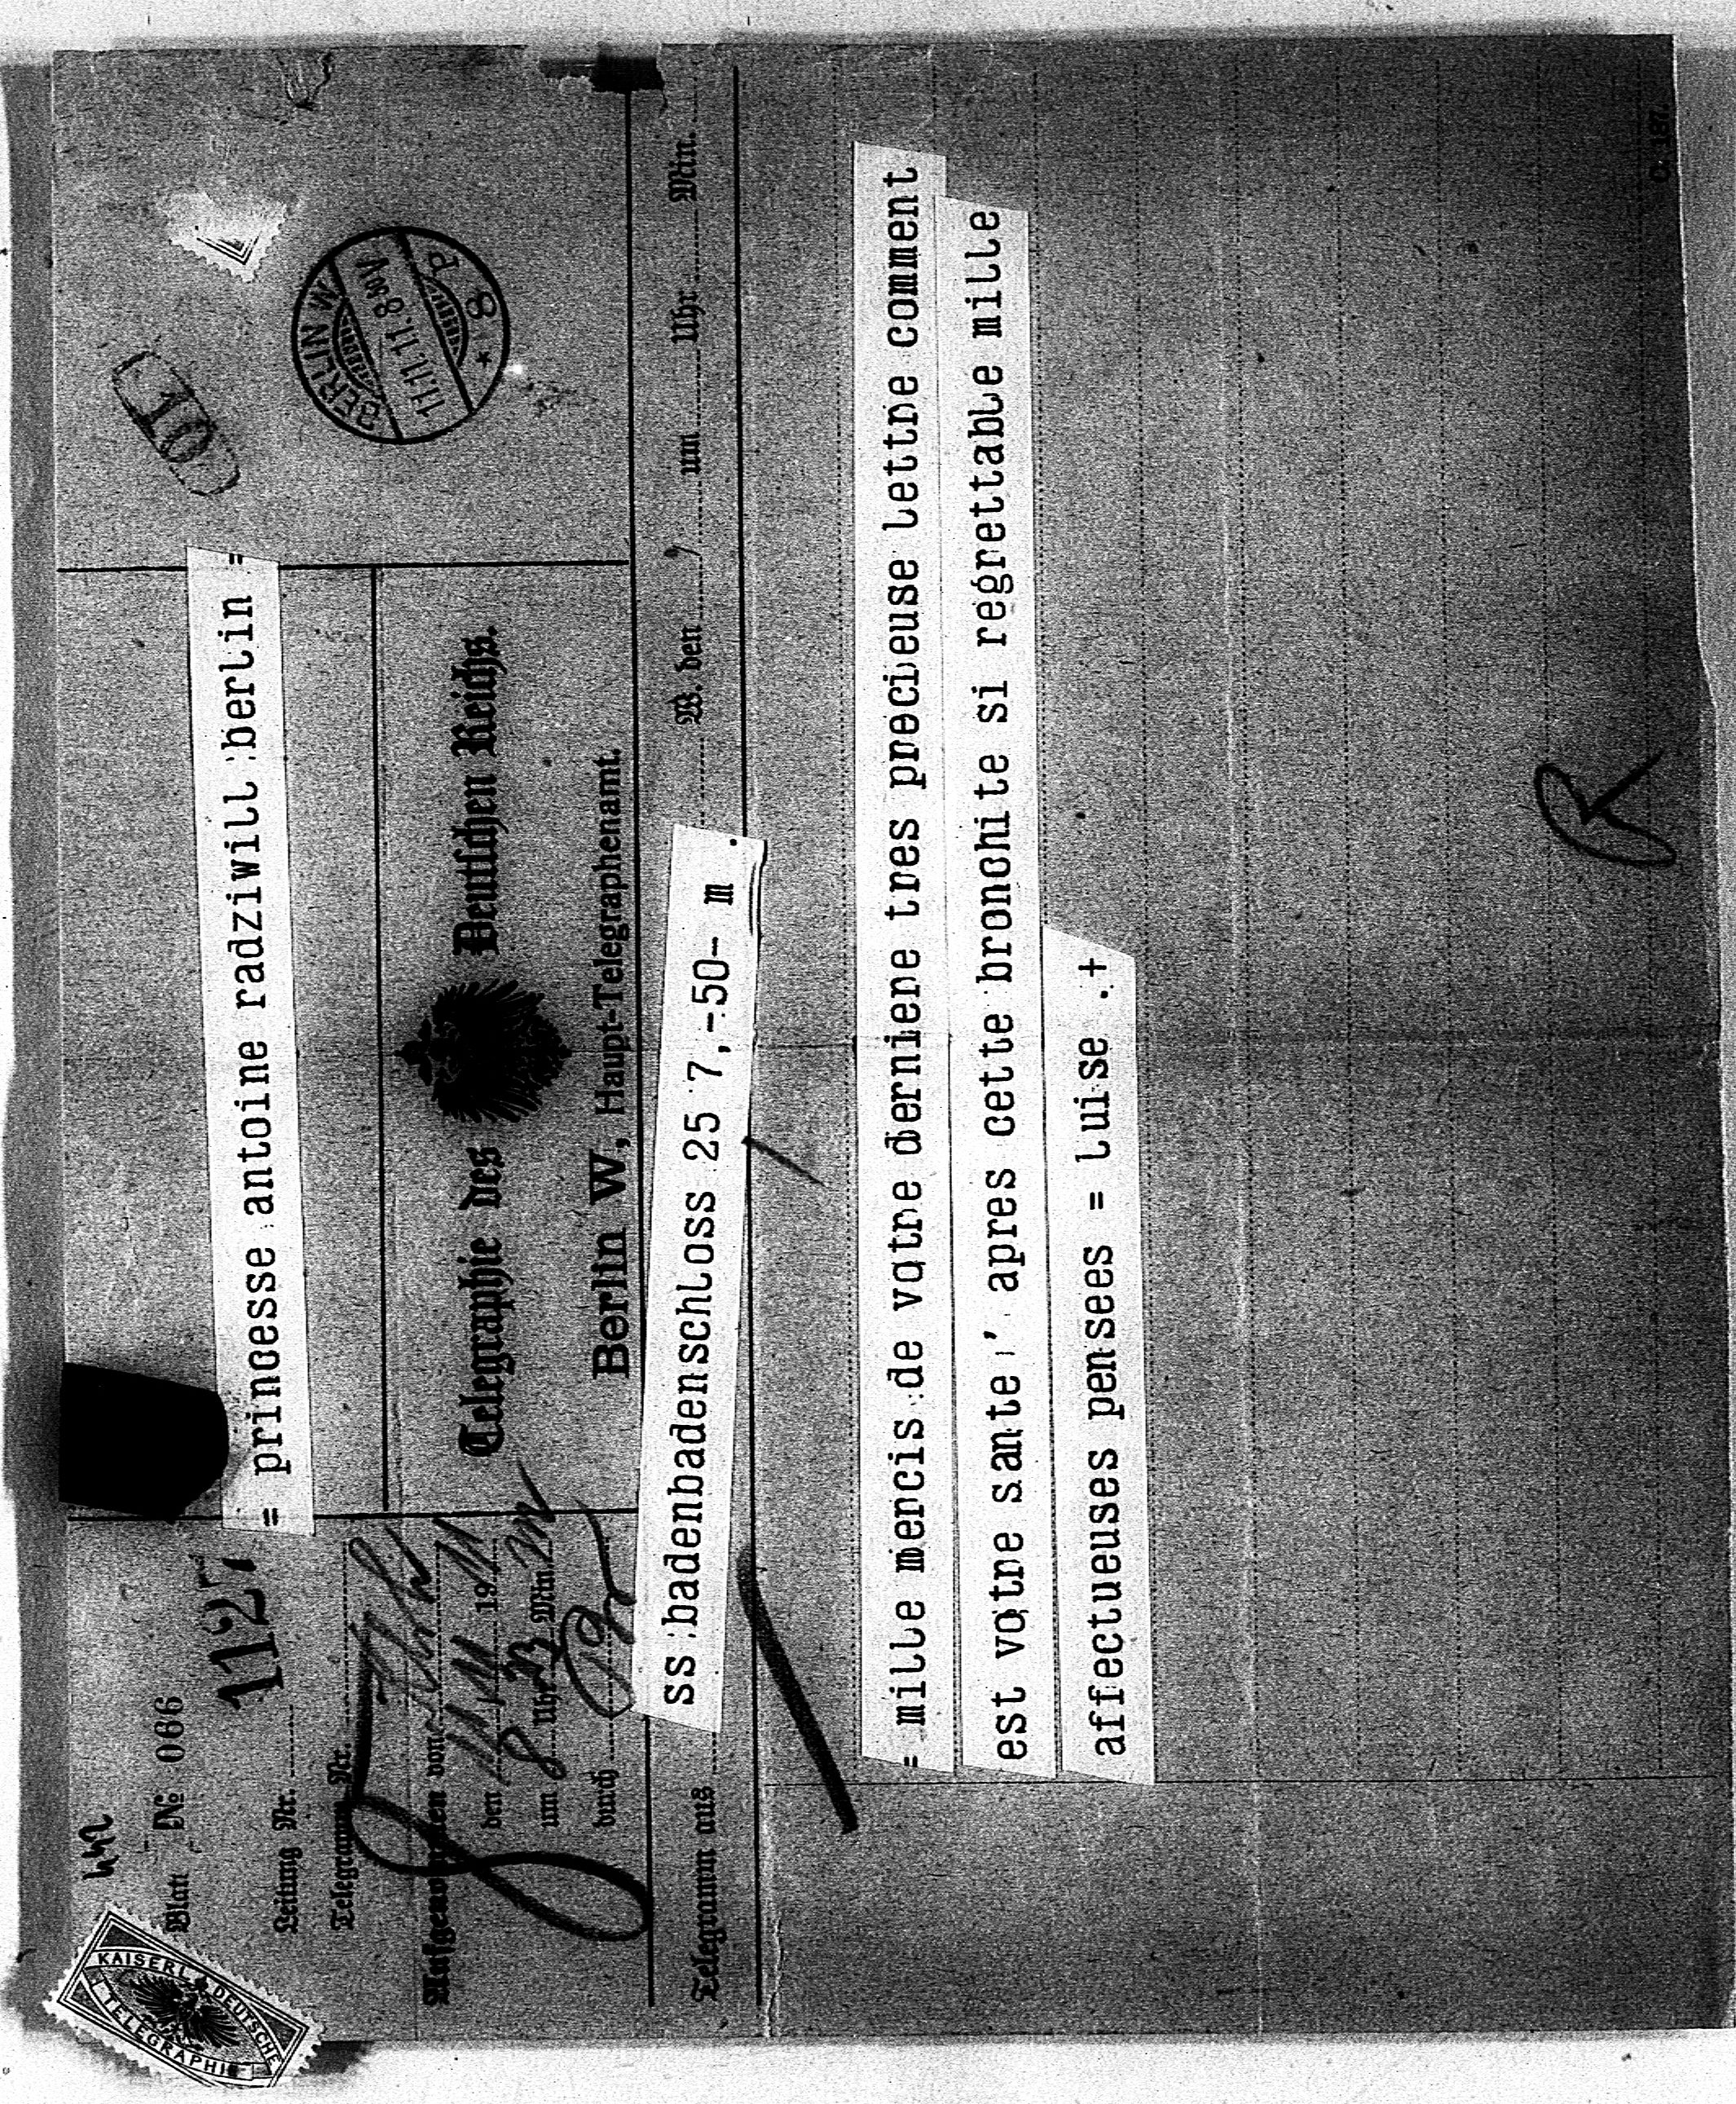 442
Blatt № 066
1127
Leitung Nr.
Telegramm Nr.
Aufgenommen von
den 11/11 1911
um 8 Uhr 23 Min. M
durch
KAISERL. DEUTSCHE
TELEGRAPHIE
= princesse antoine radziwill berlin =
Telegraphie des Deutschen Reichs.
Berlin W, Haupt-Telegraphenamt.
BERLIN W
11.11.11. 8
* 8 P
Telegramm aus ss badenbadenschloss 25 7,-50- m . W. den , um Uhr Min.
= mille mercis de votre derniere tres precieuse lettre comment
est votre sante ,' apres cette bronchite si regrettable mille
affectueuses pensees = luise .+
R
C. 187.